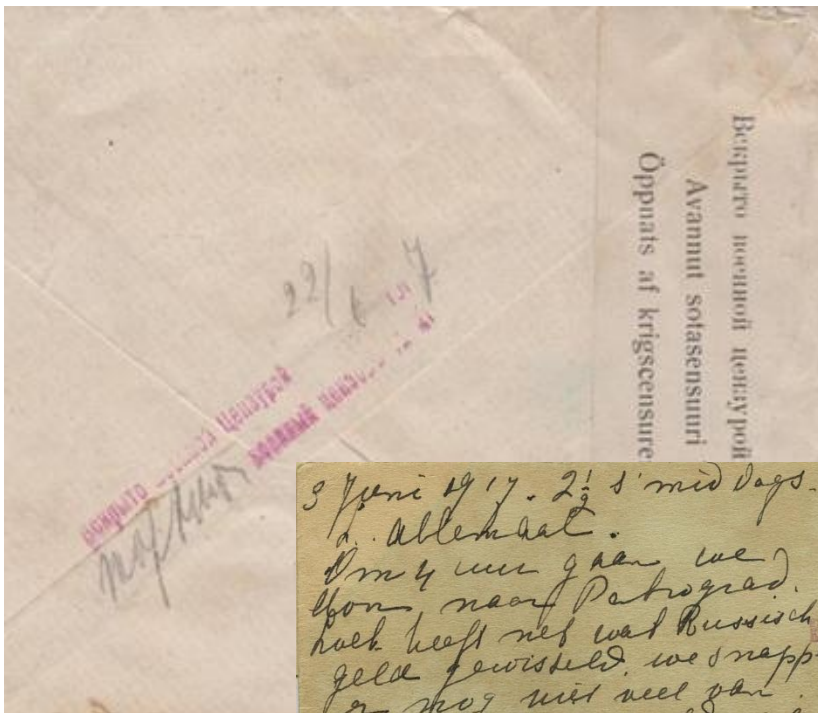 Вскрыто военной цензурой
Avannut sotasensuuri
Öppnats af krigscensure
22/ 7
вскрыто военной цензурой
военный цензоръ
3 Juni 1917. 2½ s' middags.
allemaal.
Om 4 uur gaan we
naar Petrograd.
heeft net wat Russisch
geld gewisseld. we snapp-
er nog niet veel van.